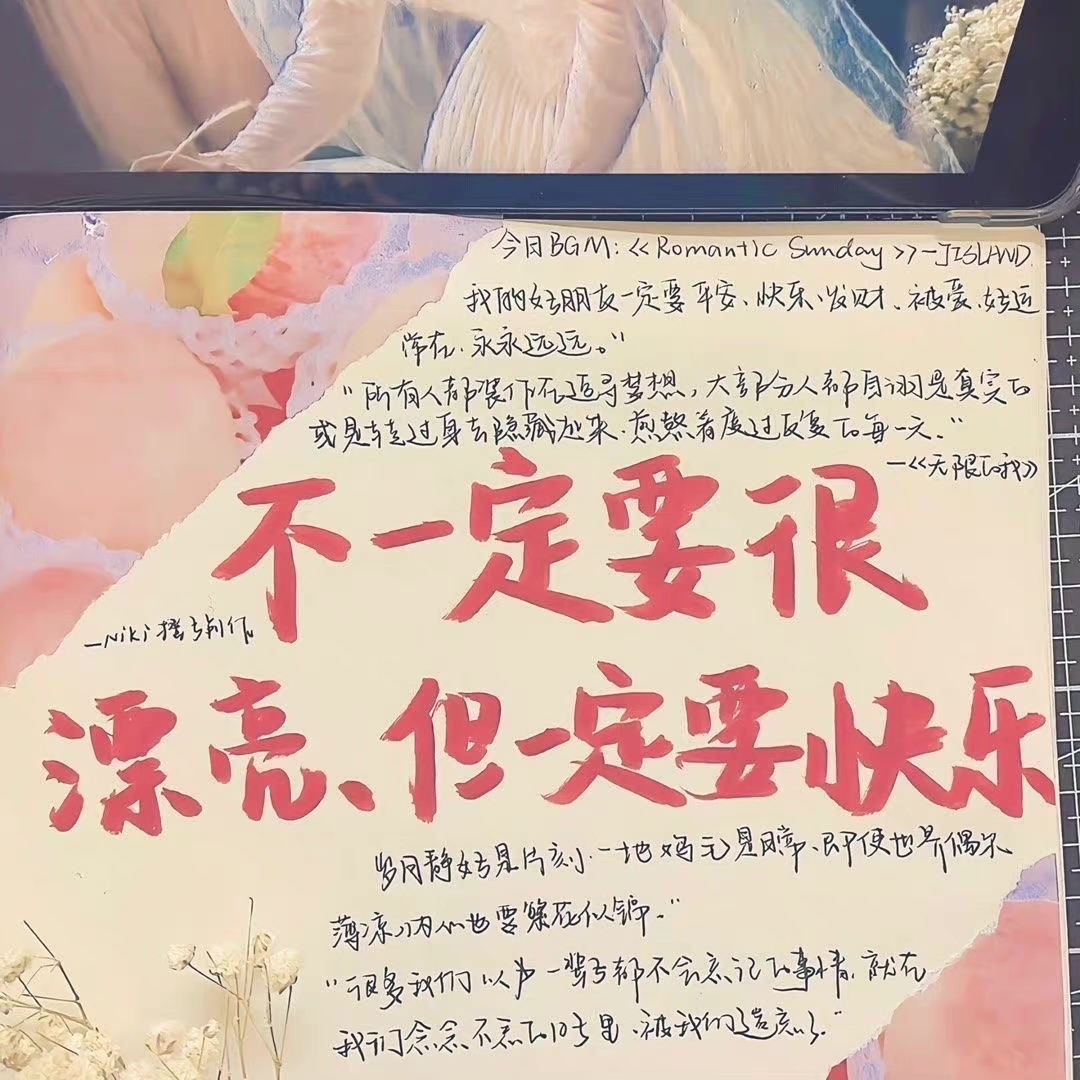 今日BGM:《Romantic Sunday》—JISLAND
我的好朋友一定要平安、快乐、发财、被爱、好运
常在、永永远远。"
"所有人都装作在追寻梦想,大部分人都自诩是真实的
或是转过身去隐藏起来、煎熬着度过反复的每一天。"
—《无限的我》
不一定要很
—Niki 摇与制作
漂亮、但一定要快乐
岁月静好是片刻、一地鸡毛是日常、即便世界偶尔
薄凉、内心也要繁花似锦。"
"很多我们以为一辈子都不会忘记的事情、就在
我们念念不忘的日子里、被我们遗忘了。"